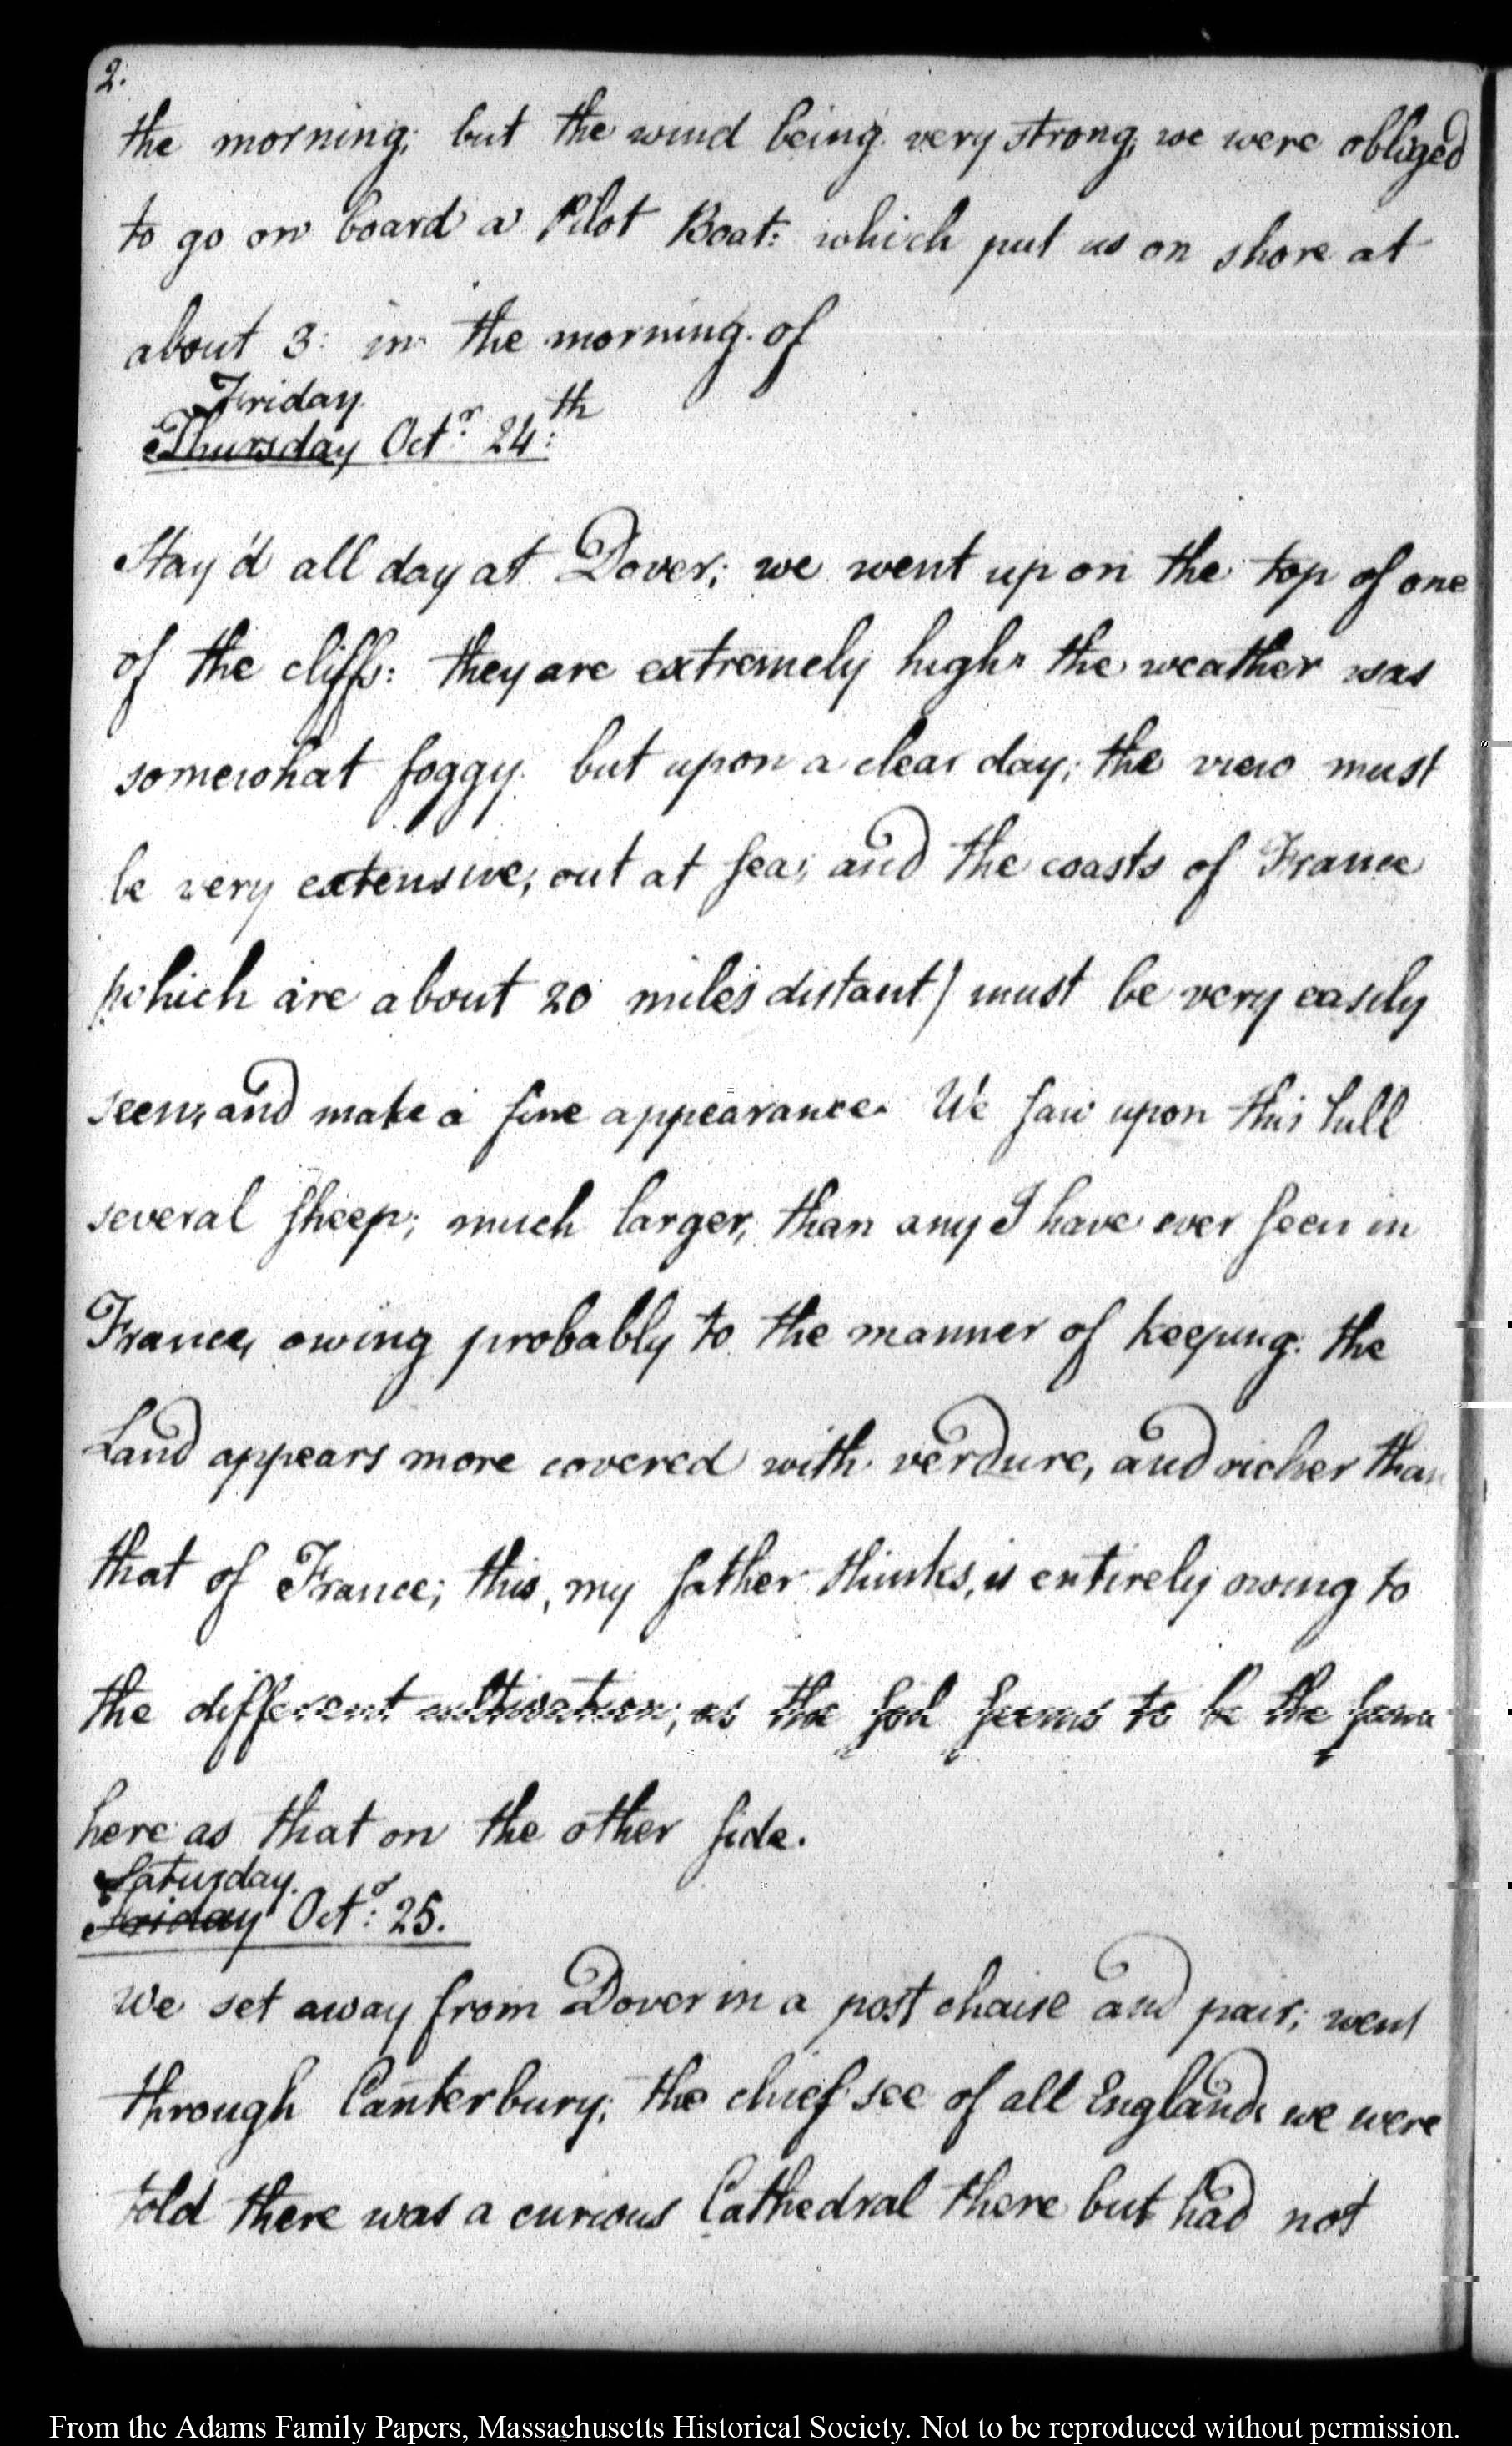 2.
the morning; but the wind being very strong, we were obliged
to go on board a Pilot Boat: which put us on shore at
about 3: in the morning. of
Friday.
Thursday Octr. 24:th
Stay'd all day at Dover; we went up on the top of one
of the cliffs: they are extremely high. the weather was
somewhat foggy. but upon a clear day; the view must
be very extensive, out at sea; and the coasts of France
(which are about 20 miles distant) must be very easily
seen, and make a fine appearance. We saw upon this hill
several sheep; much larger, than any I have ever seen in
France, owing probably to the manner of keeping. the
Land appears more covered with verdure, and richer than
that of France; this, my father thinks, is entirely owing to
the different cultivation; as the soil seems to be the same
here as that on the other side.
Saturday.
Friday Octr: 25.
We set away from Dover in a post chaise and pair; went
through Canterbury; the chief see of all England. we were
told there was a curious Cathedral there but had not
From the Adams Family Papers, Massachusetts Historical Society. Not to be reproduced without permission.